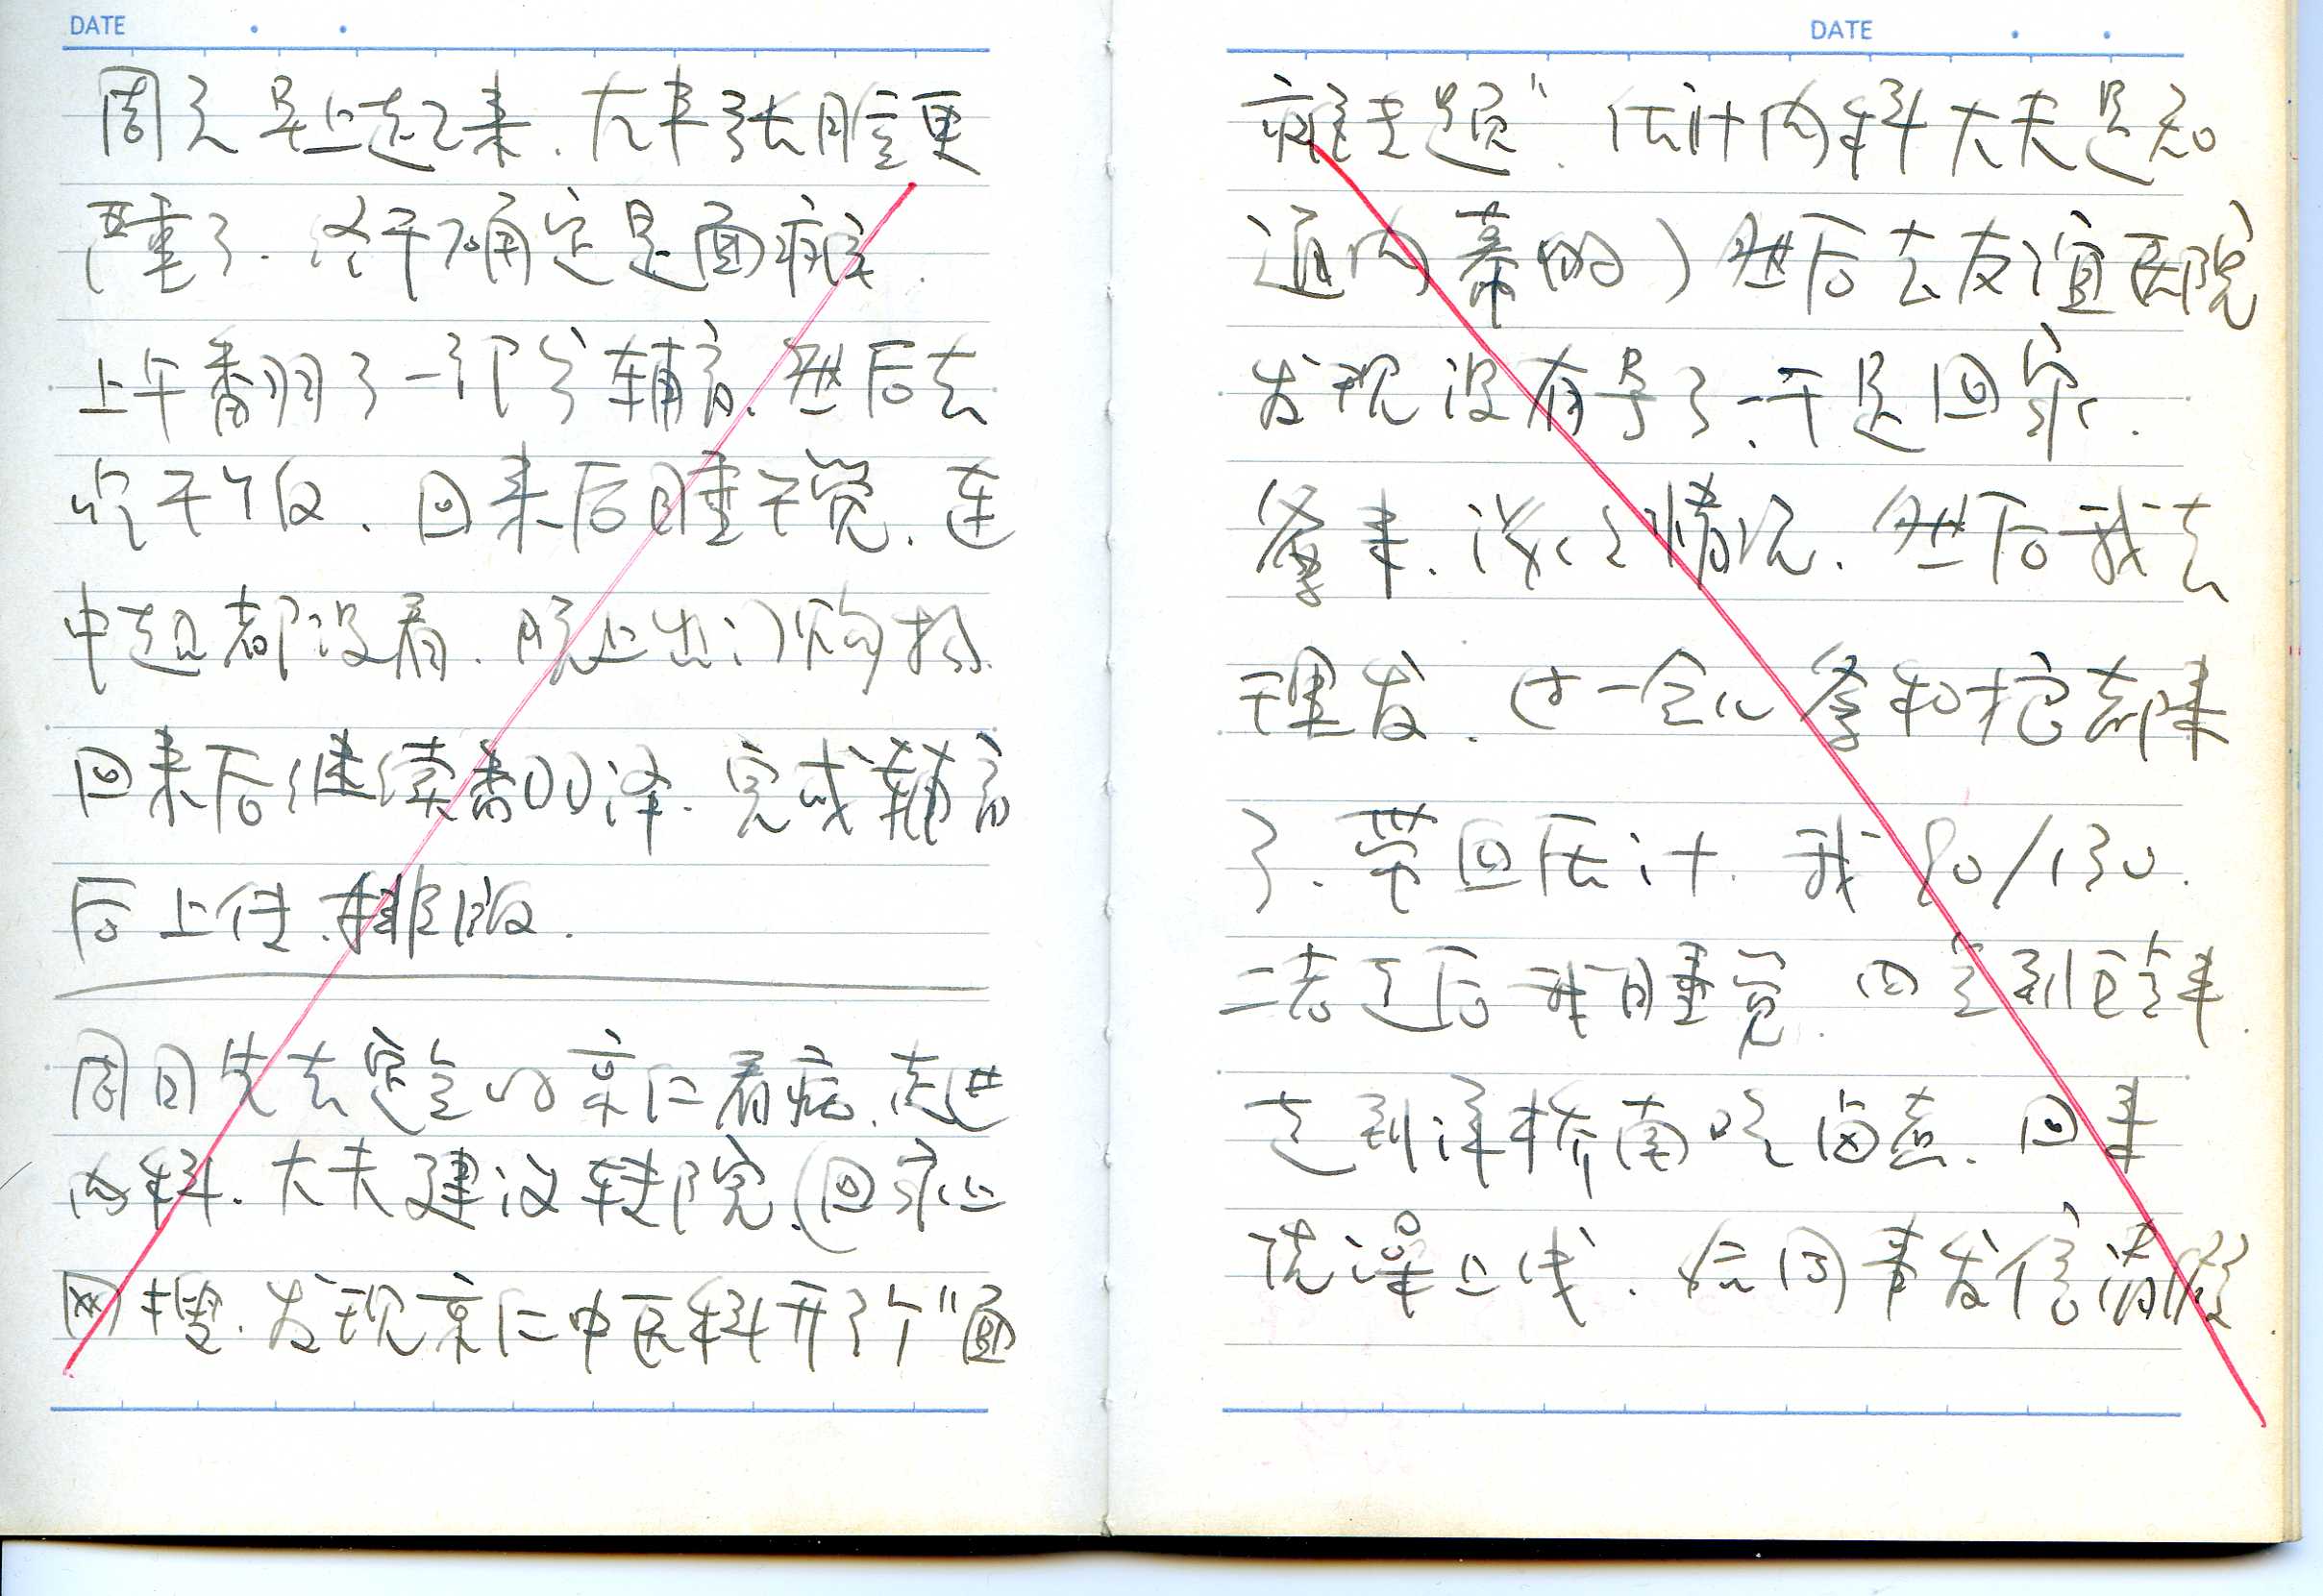 DATE
周六早上起来.左半张脸更
严重了.终于确定是面瘫.
上午翻了一部分辅言.然后去
吃午饭.回来后睡午觉.连
中超都没看.晚上出门购物.
回来后继续翻译.完成辅言
后上传.排版.
周日先去定点的京仁看病.走进
内科.大夫建议转院.(回家上
网搜.发现京仁中医科开了个"面
DATE
瘫专题".估计内科大夫是知
道内幕的)然后去友谊医院
发现没有号了.于是回家.
爹来.说了情况.然后我去
理发.过一会儿爹和挖都来
了.带回压计.我80/130.
二老走后我睡觉.四点到五点半.
走到洋桥南吃卤煮.回来
洗澡上线.给同事发信请假.